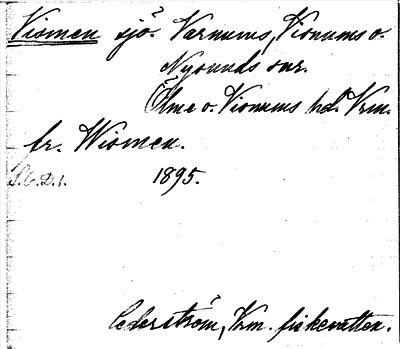 Vismen sjö. Varnums, Visnums o.
Nysunds snr.
Ölme o. Visnums hd. Vrm.
fr. Wismen.
S.C.D.1. 1895.
Cederström, Vrm. fiskevatten.